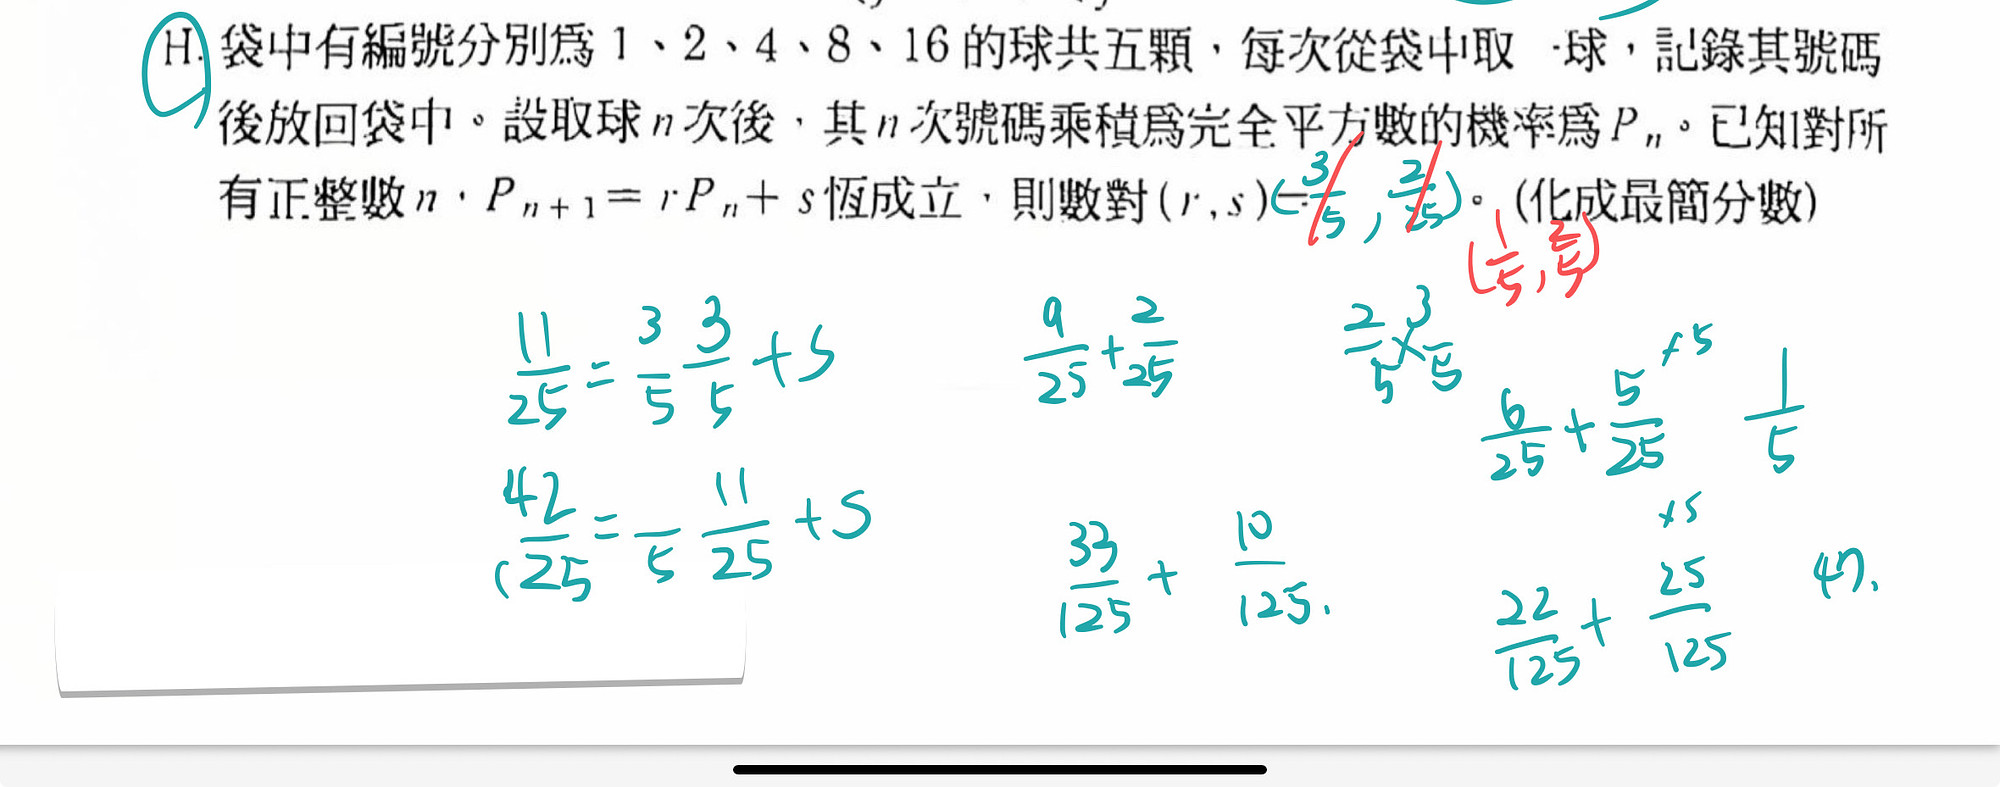 H. 袋中有編號分別為 1、2、4、8、16 的球共五顆，每次從袋中取 球，記錄其號碼
後放回袋中。設取球 n 次後，其 n 次號碼乘積為完全平方數的機率為 Pₙ。已知對所
有正整數 n，Pₙ₊₁ = rPₙ + s 恆成立，則數對 (r, s) = (3/5, 2/25)。(化成最簡分數)
(1/5, 2/5)
11/25 = 3/5 3/5 + S
9/25 + 2/25
2/5 × 3/5
6/25 + 5/25 ×5
1/5
42/125 = /5 11/25 + S
33/125 + 10/125.
22/125 + 25/125 ×5
47.